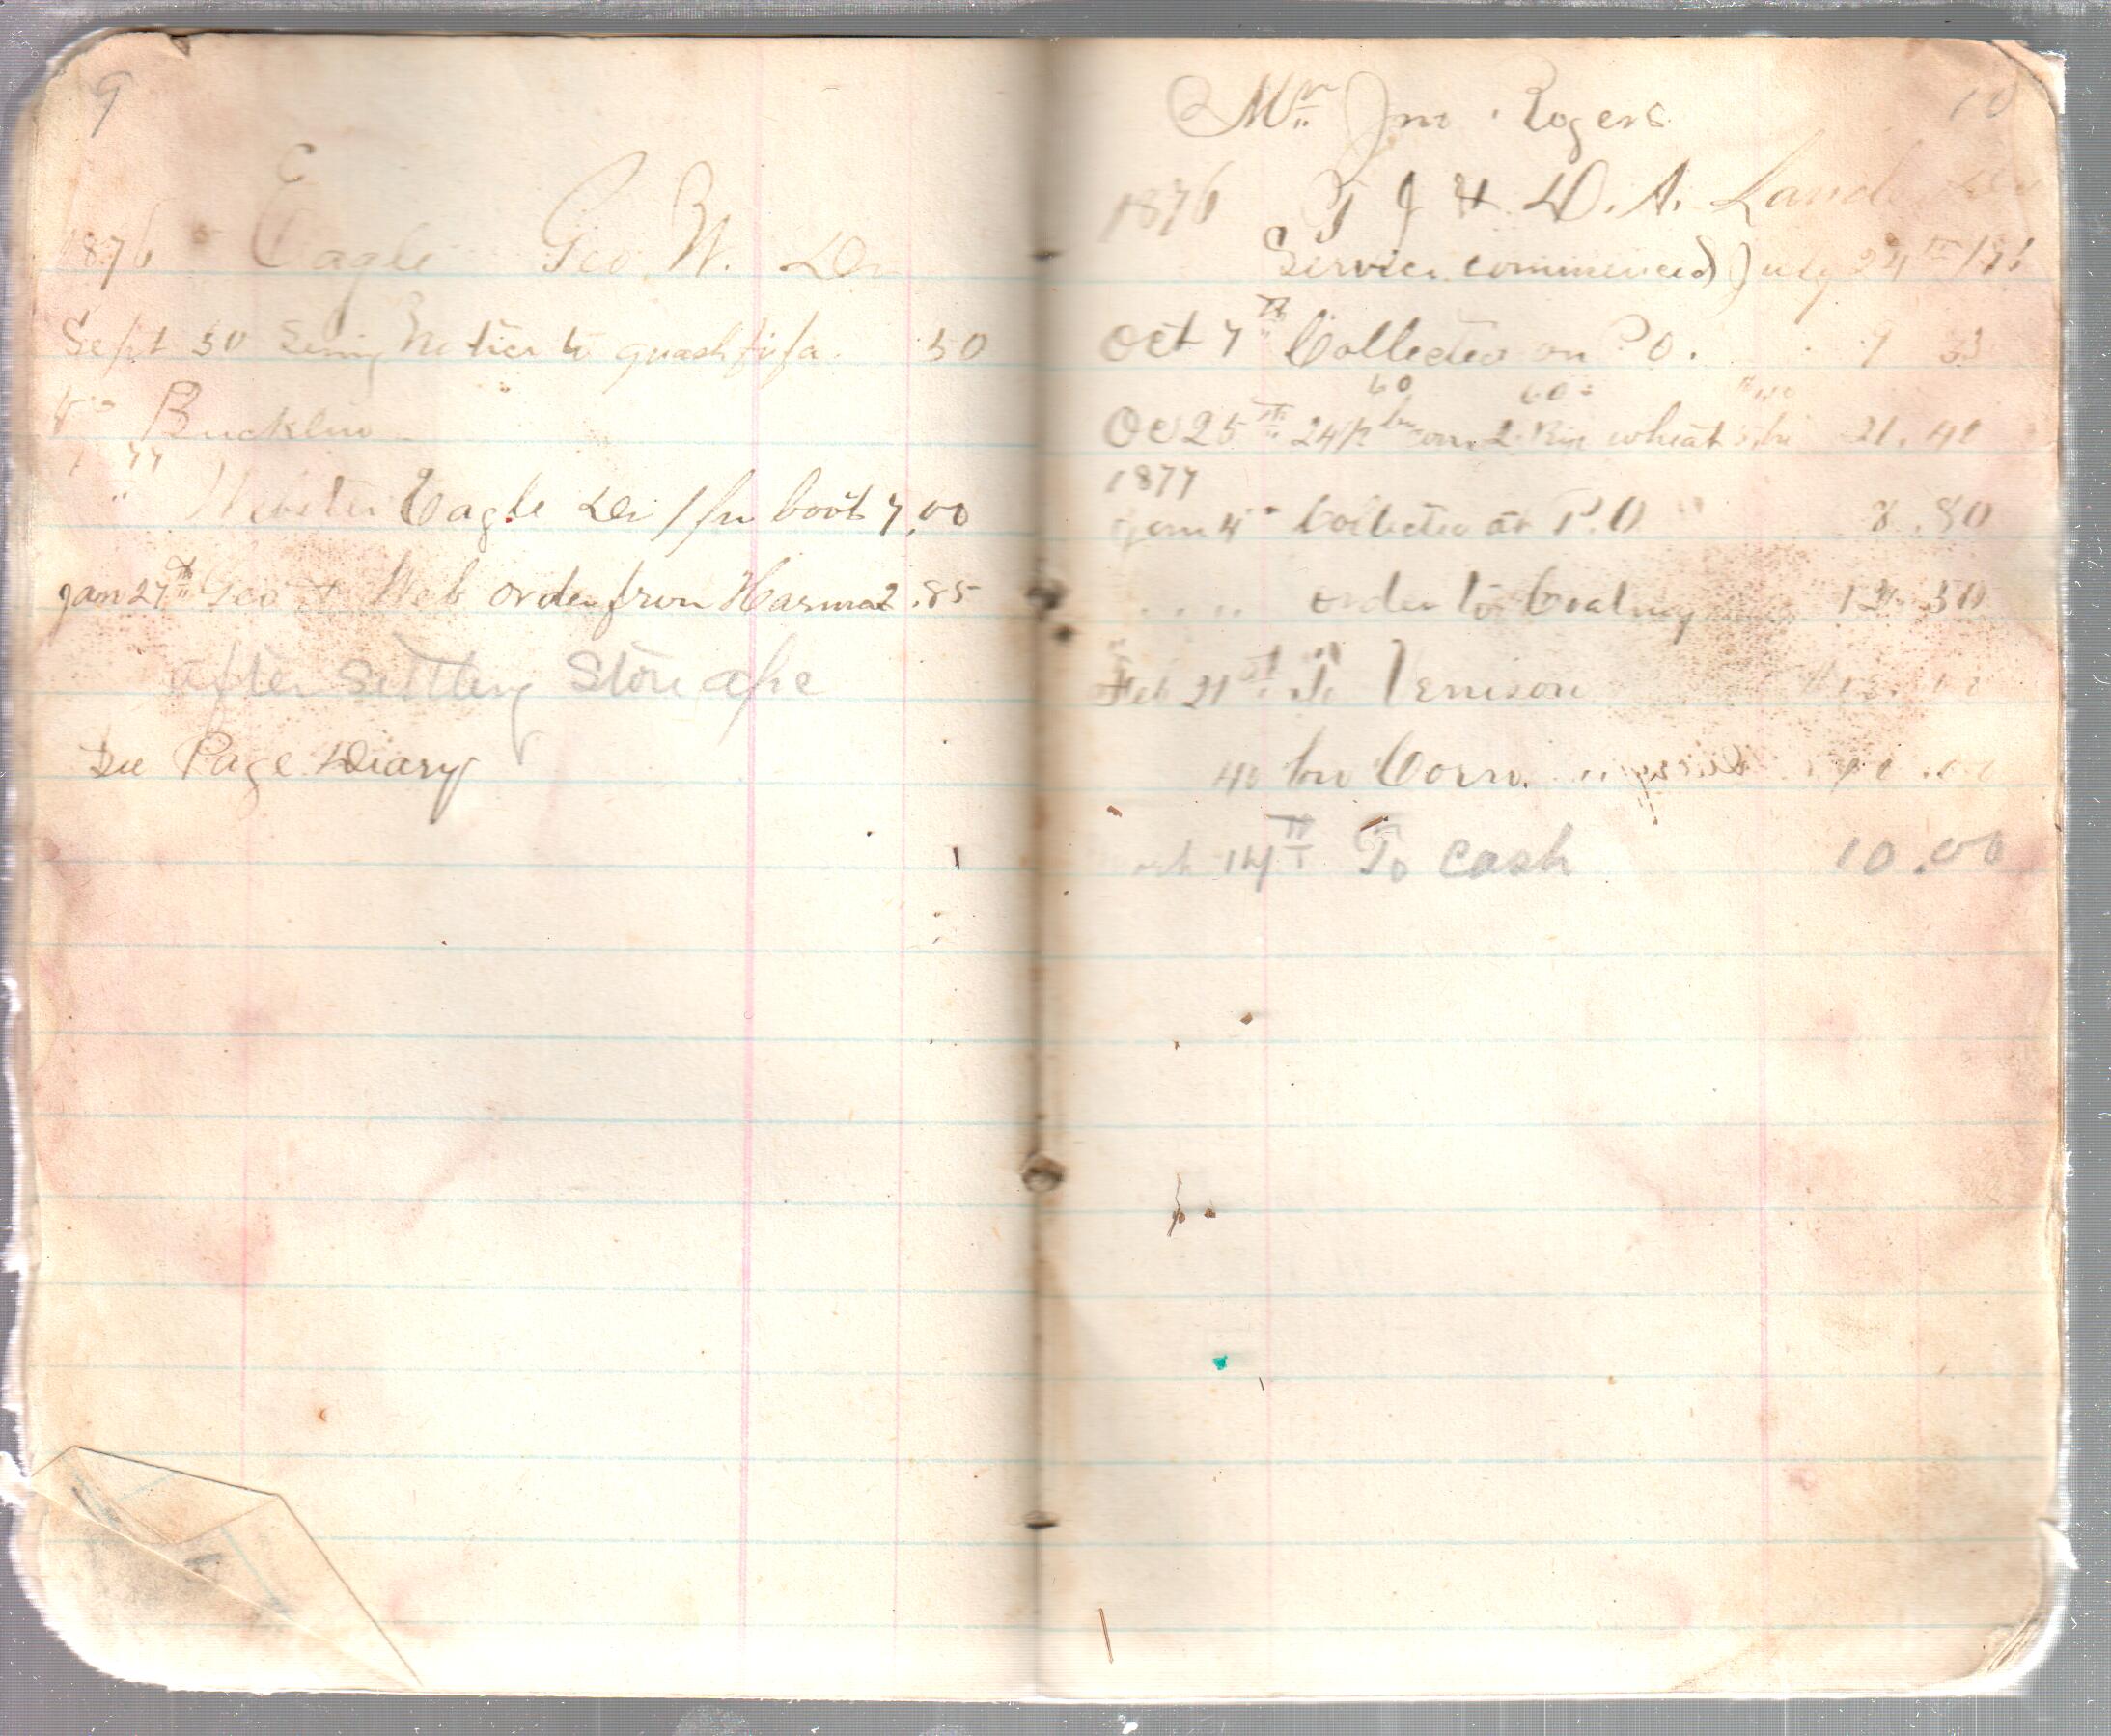 9
E
1876 Eagle Geo. W. Dr
Sept 30 Serving Notice to quash fi fa. 50
Bucklin
77
" Webster Eagle Dr 1 pr boots 7.00
Jan 27th Geo & Web order from Harmat 2.85
after settling Store
See Page Diary
10
Mr Jno Rogers
1876 T J & D. A. Land Dr
Service commenced July 24th /76
Oct 7th Collected on P.O. 7 33
60 60
Oc 25th 24 1/2 bu corn 2 Rye wheat 5 bu 21.40
1877
Jan 4 Collected at P.O " 8.80
" " order to 12.50
Feb 21st To Vennison
40 bu Corn. "
14th To Cash 10.00